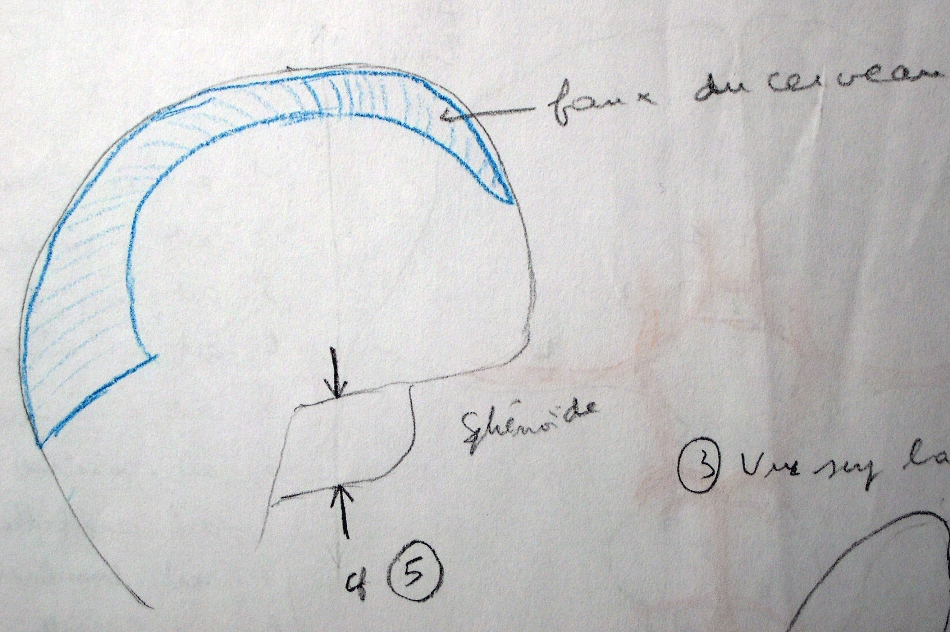 faux du cerveau
Sphénoïde
③ Vue sup la
cf ⑤